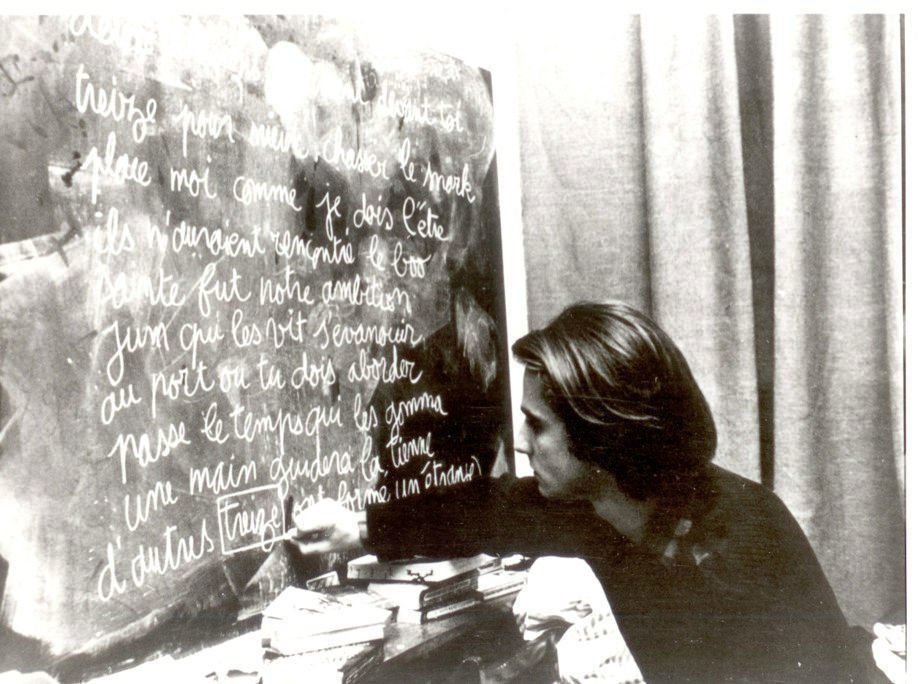 devant toi
treize pour mieux chasser le snark
place moi comme je dois l'être
ils n'auraient rencontré le boo
sainte fut notre ambition
jum qui les vit s'évanouir
au port ou tu dois aborder
passe le temps qui les gomma
une main guidera la tienne
d'autres treize ont formé un étrange